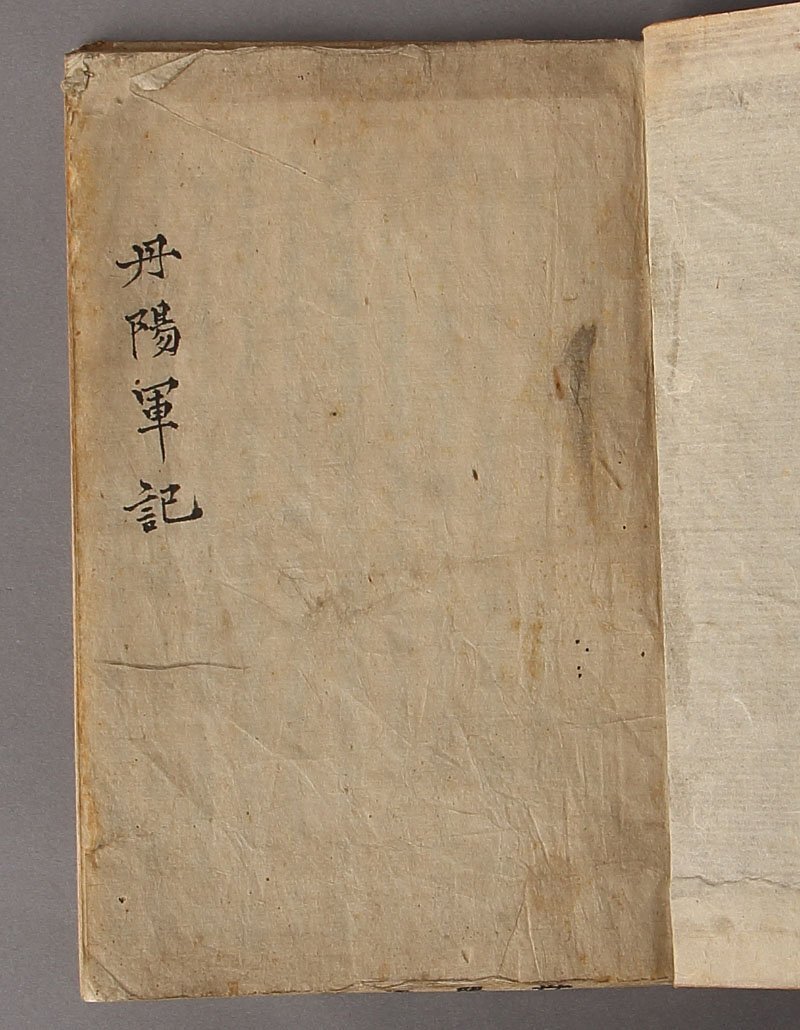 丹陽軍記